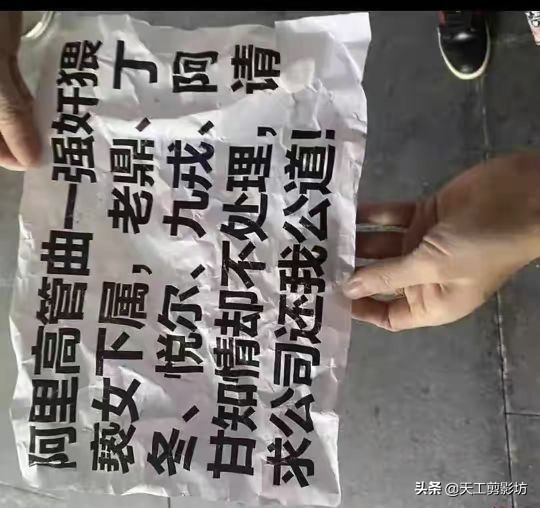 阿里高管曲一强奸猥
亵女下属，老鼎、丁
冬、悦尔、九戎、阿
甘知情却不处理，请
求公司还我公道！
头条 @天工剪影坊